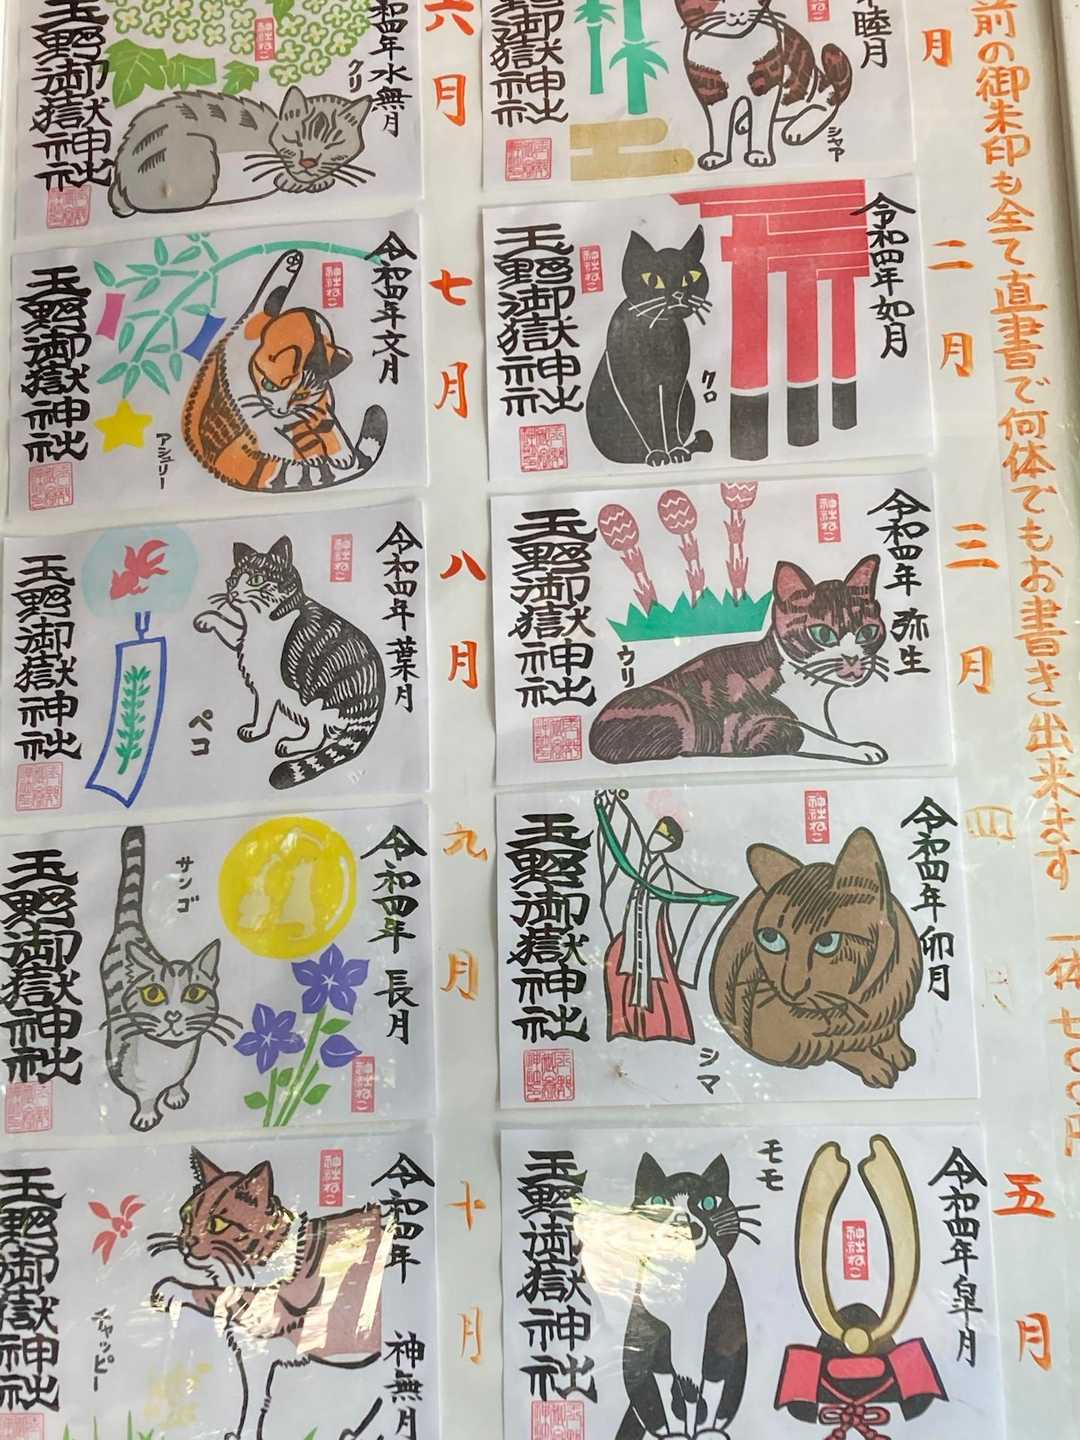 前の御朱印も全て直書で何体でもお書き出来ます 一体七〇〇円
月
睦月
神社ねこ
シャア
玉野御嶽神社
二月
令和四年如月
神社ねこ
クロ
玉野御嶽神社
三月
令和四年 弥生
神社ねこ
ウリ
玉野御嶽神社
四月
令和四年卯月
神社ねこ
シマ
玉野御嶽神社
五月
令和四年皐月
神社ねこ
モモ
玉野御嶽神社
六月
和四年水無月
神社ねこ
クリ
玉野御嶽神社
七月
令和四年文月
神社ねこ
アシュリー
玉野御嶽神社
八月
令和四年葉月
神社ねこ
ペコ
玉野御嶽神社
九月
令和四年長月
神社ねこ
サンゴ
玉野御嶽神社
十月
令和四年 神無月
神社ねこ
チャッピー
玉野御嶽神社